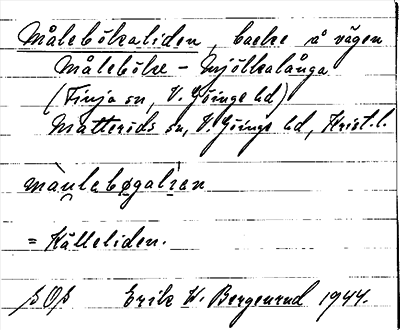 Målebökaliden, backe å vägen
Målebök - Mjölkalånga
(Finja sn, V. Göinge hd)
Matteröds sn, V. Göinge hd, Krist. l.
màulebøgalìen
= Källeliden.
Erik W. Bergenrud 1944.